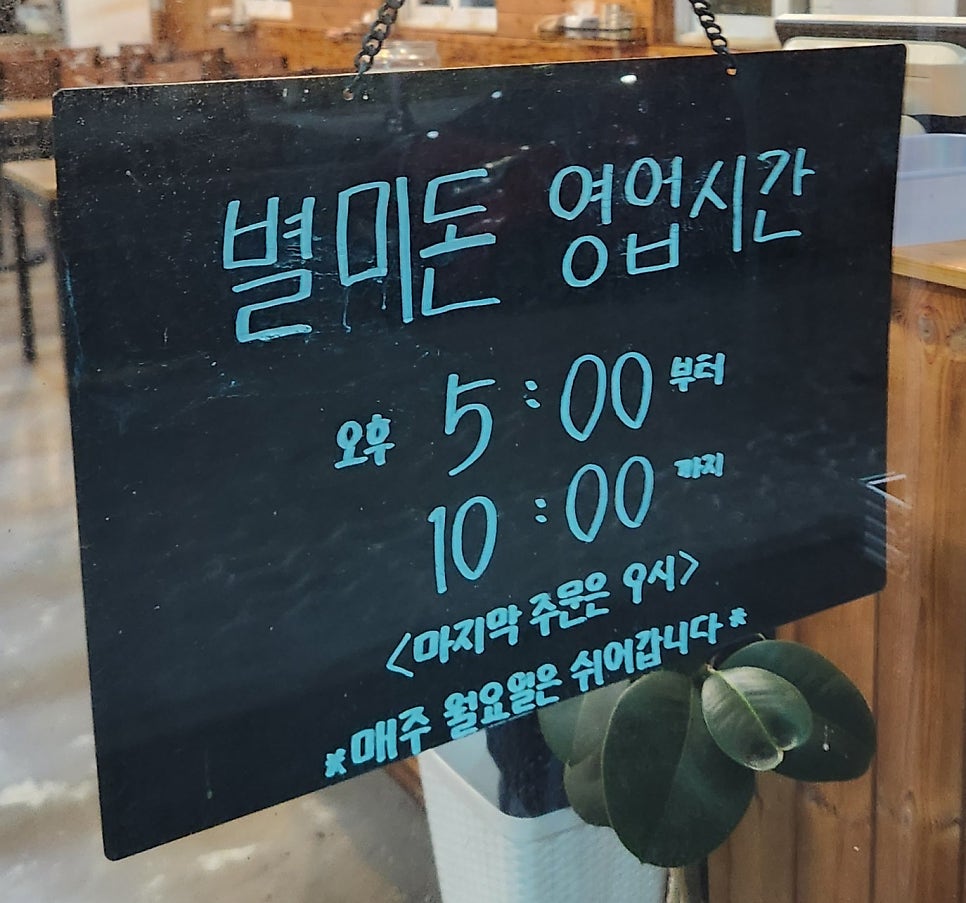 별미돈 영업시간
오후 5:00 부터
10:00 까지
<마지막 주문은 9시>
*매주 월요열은 쉬어갑니다*